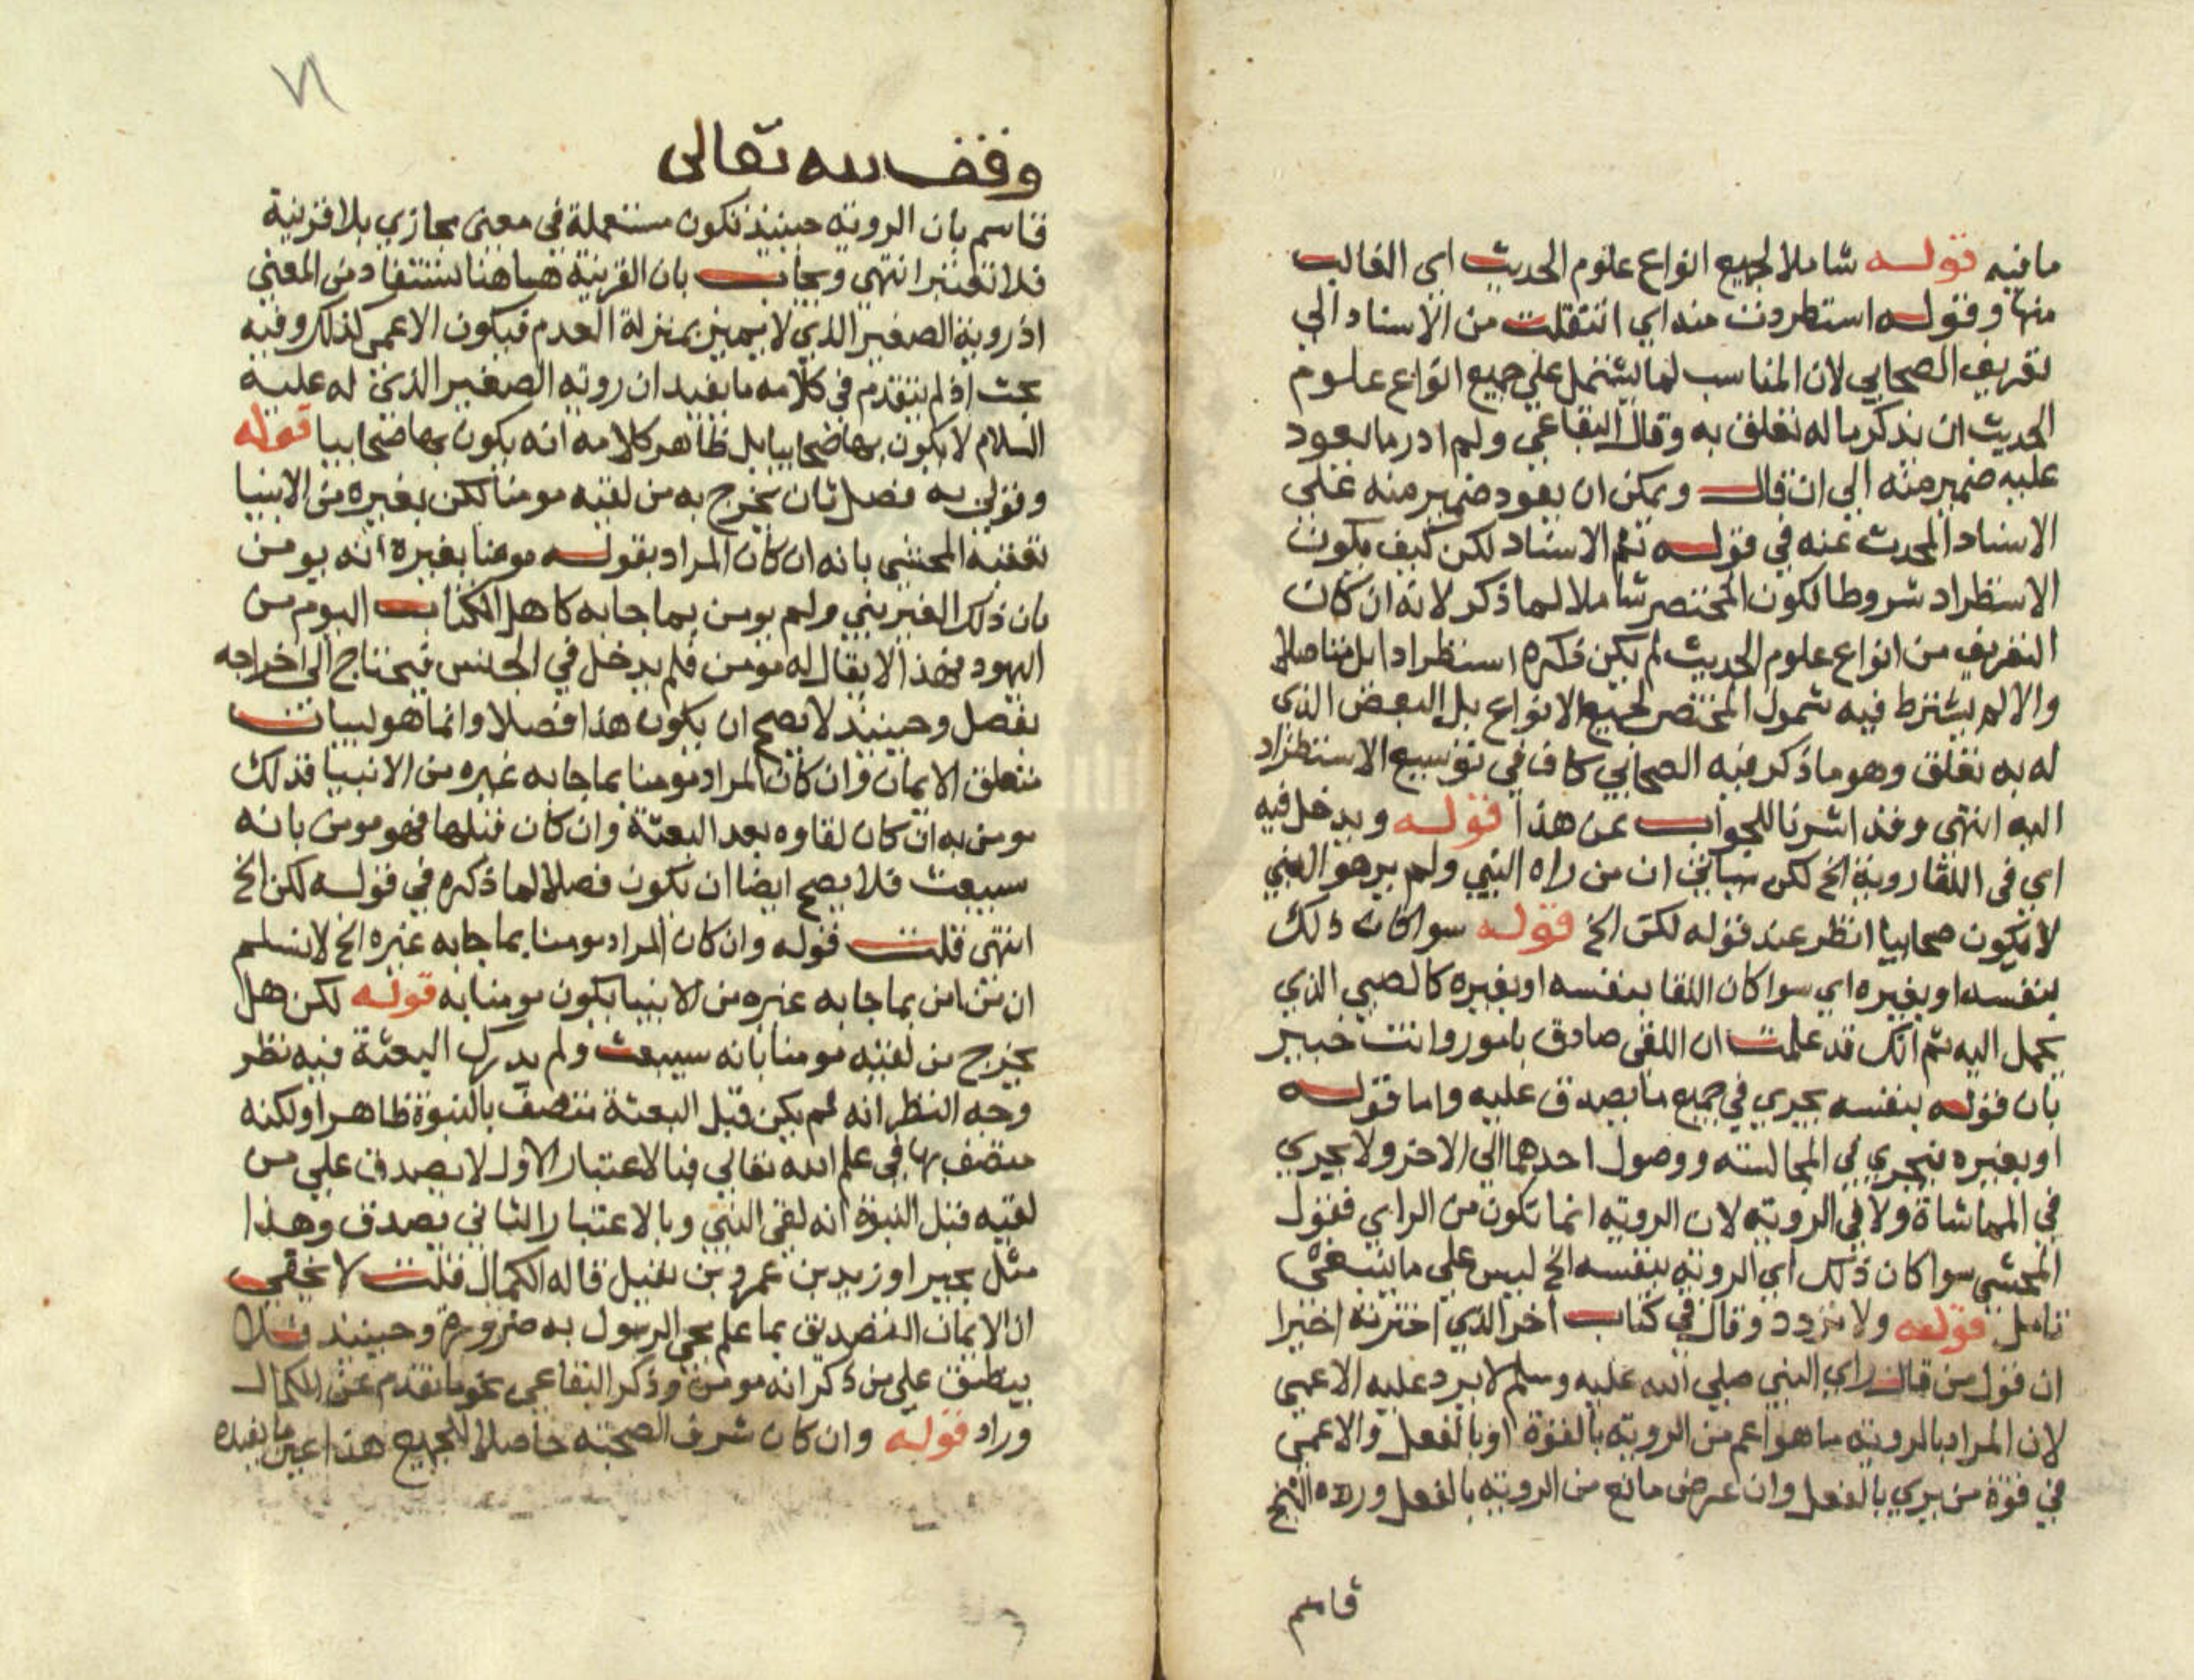 ما فيه قوله شاملا لجميع انواع علوم الحديث اي الغالب
منها وقوله استطردت منه اي انتقلت من الاسناد الي
تعريف الصحابي لان المناسب لما يشتمل علي جميع انواع علوم
الحديث ان يذكر ما له تعلق به وقال البقاعي ولم ادر ما يعود
عليه ضمير منه الي ان قال ويمكن ان يعود ضمير منه علي
الاسناد المحدث عنه في قوله ثم الاسناد لكن كيف يكون
الاستطراد شروطا لكون المختصر شاملا لما ذكر لانه ان كان
التعريف من انواع علوم الحديث لم يكن ذكره استطرادا بل متاصلا
والا لم يشترط فيه شمول المختصر لجميع الانواع بل البعض الذي
له به تعلق وهو ما ذكر فيه الصحابي كاف في توسيع الاستطراد
اليه انتهي وقد اشرنا للجواب عن هذا قوله ويدخل فيه
اي في اللقا روية الخ لكن سياتي ان من راه النبي ولم ير هو النبي
لا يكون صحابيا انظر عند قوله لكن الخ قوله سوا كان ذلك
بنفسه او بغيره اي سوا كان اللقا بنفسه او بغيره كالصبي الذي
يحمل اليه ثم انك قد علمت ان اللقي صادق بامور وانت خبير
بان قوله بنفسه يجري في جميع ما يصدق عليه واما قوله
او بغيره فيجري في المجالسته ووصول احدهما الي الاخر ولا يجري
في المماشاة ولا في الرويته لان الرويته انما تكون من الراي فقول
المحشي سوا كان ذلك اي الرويته بنفسه الخ ليس علي ما ينبغي
تامل قوله ولا تردد وقال في كتاب اخر الذي اخترته اخيرا
ان قول من قال راي النبي صلي الله عليه وسلم لا يرد عليه الاعمي
لان المراد بالرويته ما هو اعم من الرويته بالقوة او بالفعل والاعمي
في قوة من يري بالفعل وان عرض مانع من الرويته بالفعل ورده الشيخ
قاسم
٧١
وقف لله تعالى
قاسم بان الرويته حينيذ تكون مستعملة في معني مجازي بلا قرينة
فلا تعتبر انتهي ويجاب بان القرينة هاهنا تستفاد من المعني
اذ روية الصغير الذي لا يميز بمنزلة العدم فيكون الاعمي كذلك وفيه
بحث اذ لم يتقدم في كلامه ما يفيد ان رويته الصغير الذي له عليه
السلام لا يكون بها صحابيا بل ظاهر كلامه انه يكون بها صحابيا قوله
وقولي به فصل ثان يخرج به من لقيه مومنا لكن بغيره من الانبيا
تعقبه المحشي بانه ان كان المراد بقوله مومنا بغيره انه يومن
بان ذلك الغير نبي ولم يومن بما جا به كاهل الكتاب اليوم من
اليهود فهذا لا يقال له مومن فلم يدخل في الجنس فيحتاج الي اخراجه
بفصل وحينيذ لا يصح ان يكون هذا فصلا وانما هو لبيان
متعلق الايمان وان كان المراد مومنا بما جا به غيره من الانبيا فذلك
مومن به ان كان لقاوه بعد البعثة وان كان قبلها فهو مومن بانه
سيبعث فلا يصح ايضا ان يكون فصلا لما ذكره في قوله لكن الخ
انتهي قلت قوله وان كان المراد مومنا بما جا به غيره الخ لا نسلم
ان من امن بما جا به غيره من الانبيا يكون مومنا به قوله لكن هل
يخرج من لقيه مومنا بانه سيبعث ولم يدرك البعثة فيه نظر
وجه النظر انه لم يكن قبل البعثة متصف بالنبوة ظاهرا ولكنه
متصف بها في علم الله تعالي فبالاعتبار الاول لا يصدق علي من
لقيه قبل النبوة انه لقي النبي وبالاعتبار الثاني يصدق وهذا
مثل بحيرا وزيد بن عمرو بن نفيل قاله الكمال قلت لا يخفي
ان الايمان التصديق بما علم مجي الرسول به ضرورة وحينيذ فلا
ينطبق علي من ذكر انه مومن وذكر البقاعي نحو ما تقدم عن الكمال
وزاد قوله وان كان شرف الصحبته حاصلا للجميع هذا عين ما يفيده